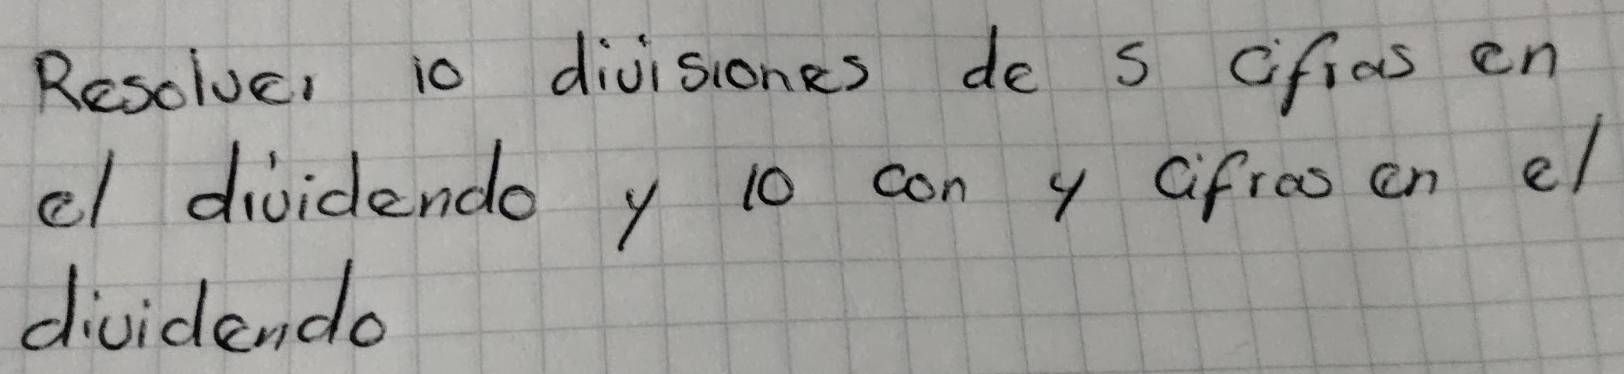 Resolver 10 divisiones de 5 cifras en
el dividendo y 10 con 4 cifras en el
dividendo